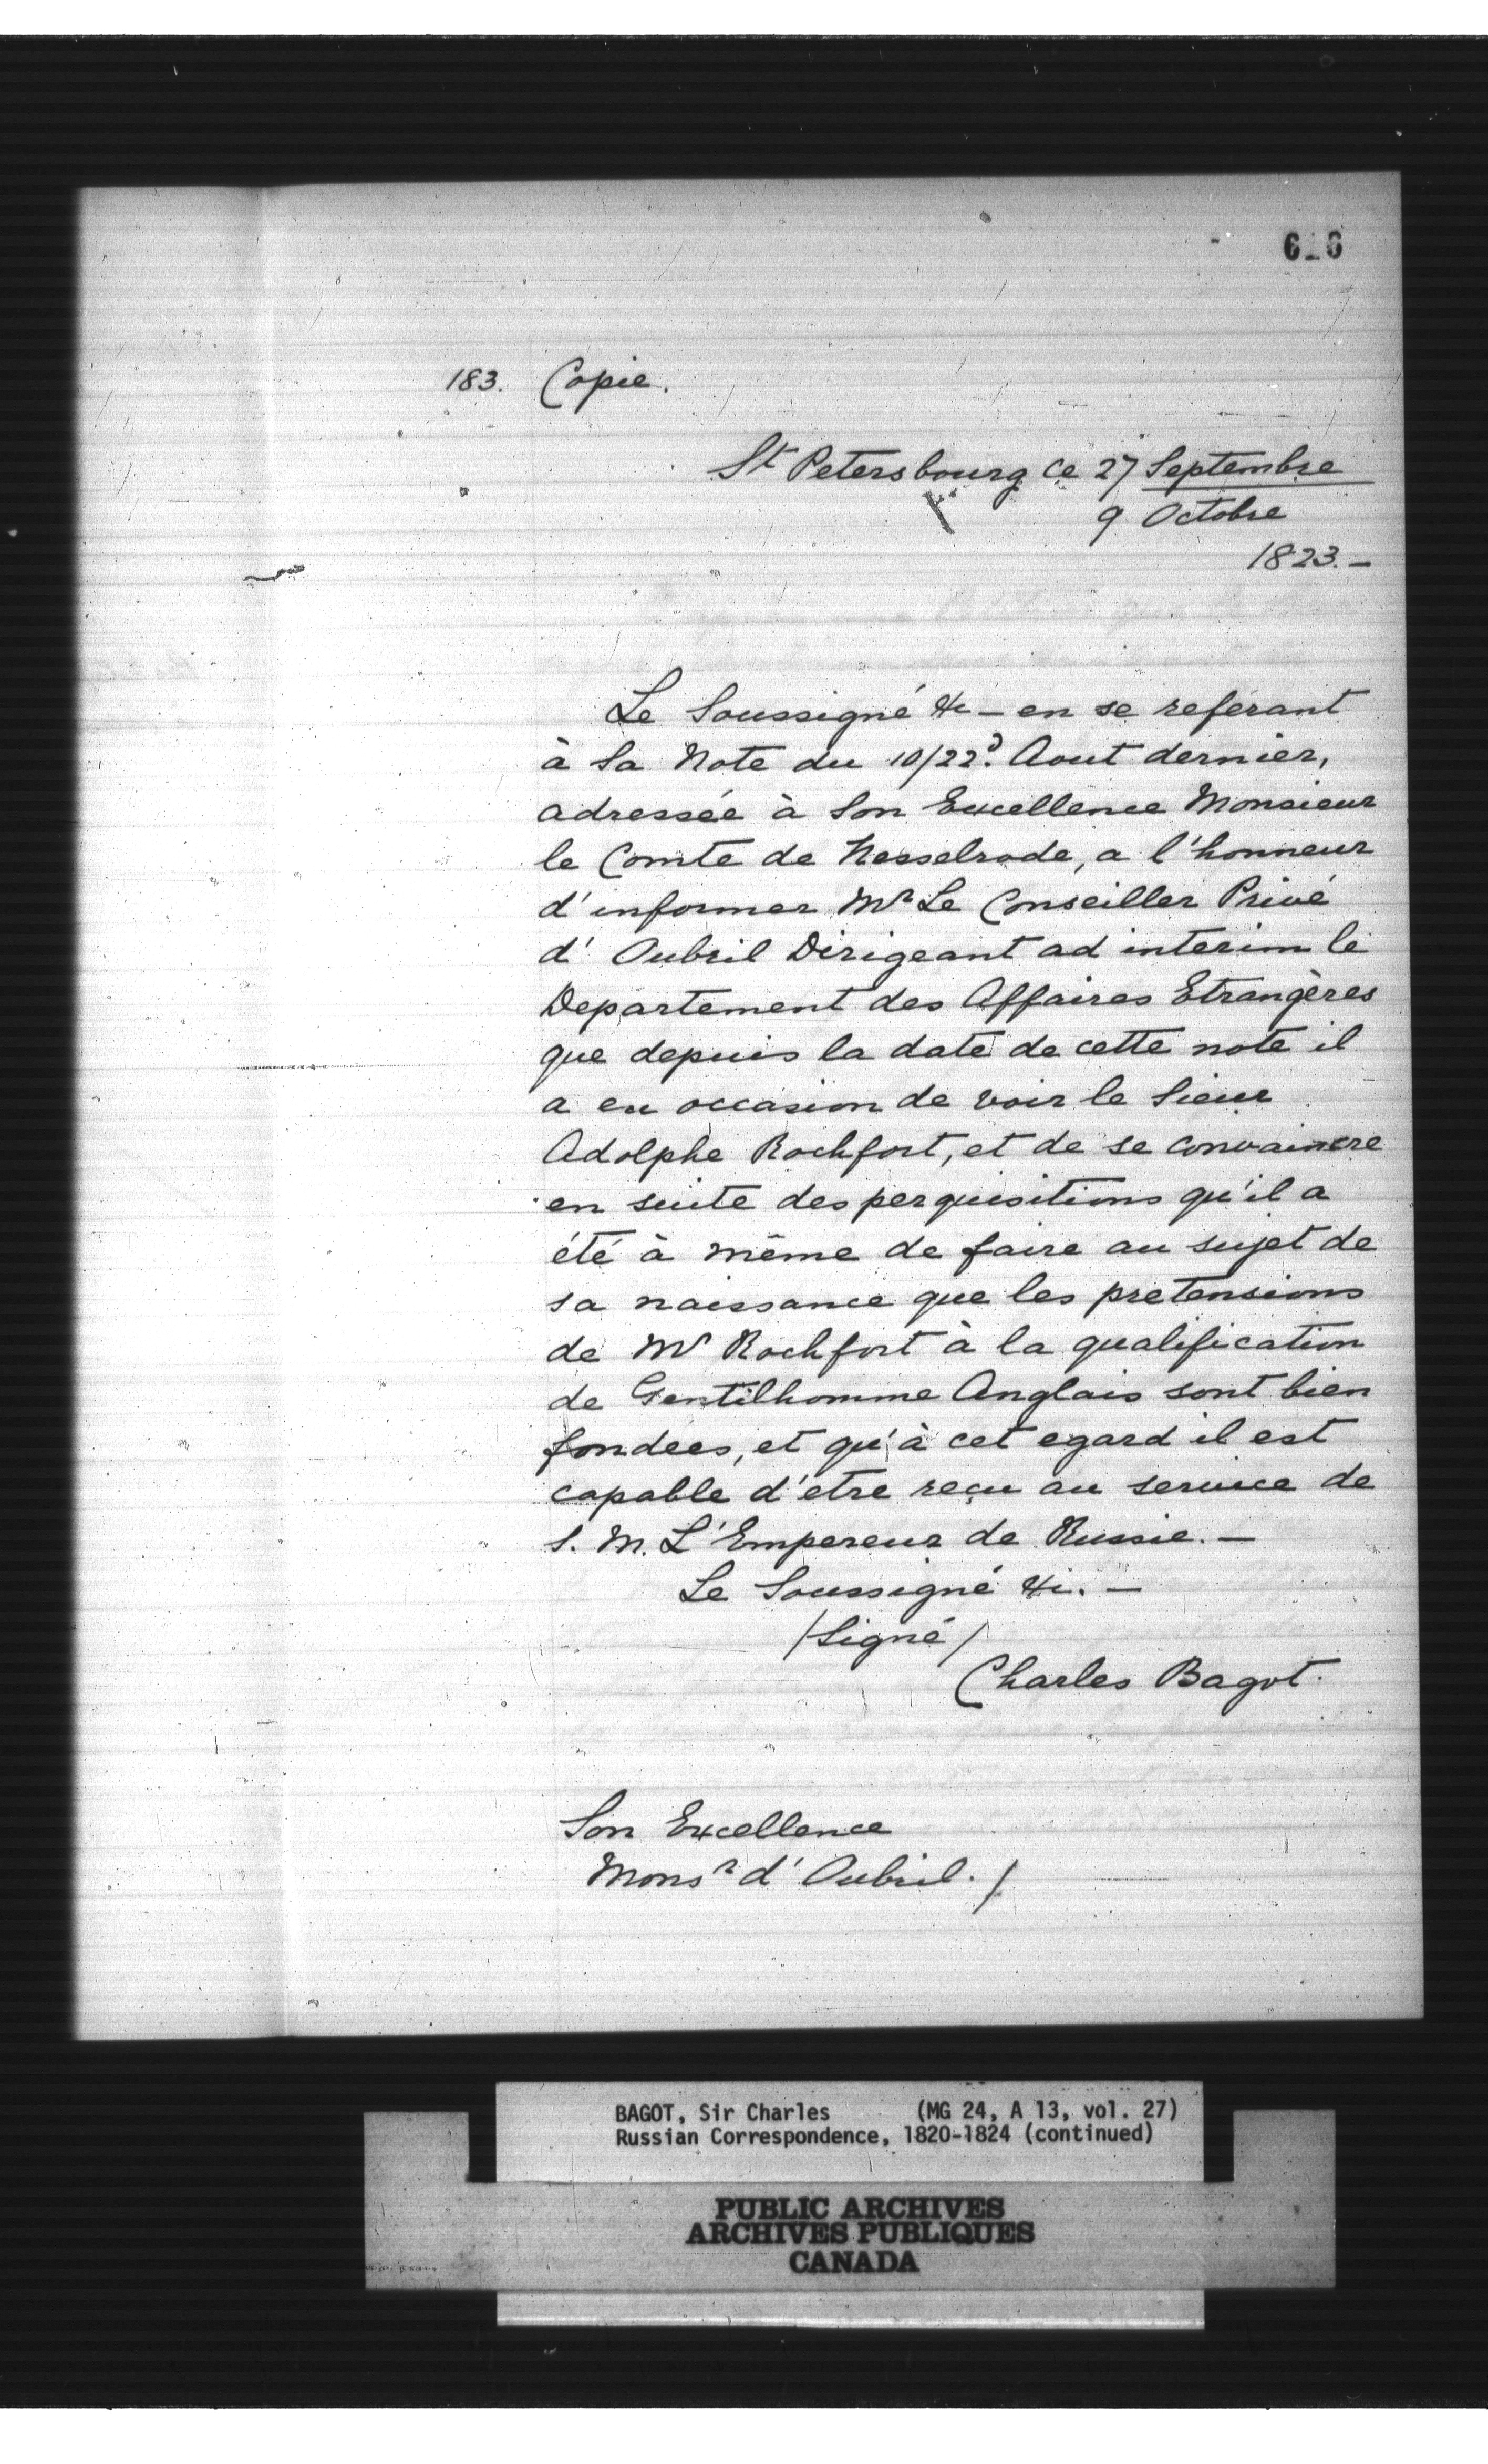 616
183. Copie.
St Petersbourg ce 27 Septembre
9 Octobre
1823.—
Le Soussigné &c — en se referant
à Sa Note du 10/22d. Aout dernier,
adressée à Son Excellence Monsieur
le Comte de Nesselrode, a l'honneur
d'informer Mr Le Conseiller Privé
d'Oubril Dirigeant ad interim le
Departement des Affaires Etrangères
que depuis la date de cette note il
a eu occasion de voir le Sieur
Adolphe Rochfort, et de se convaincre
en suite des perquisitions qu'il a
été à même de faire au sujet de
sa naissance que les pretensions
de Mr Rochfort à la qualification
de Gentilhomme Anglais sont bien
fondees, et qu'à cet egard il est
capable d'etre reçu au service de
S. M. L'Empereur de Russie. —
Le Soussigné &c. —
/Signé/
Charles Bagot.
Son Excellence
Monsr d'Oubril. /
BAGOT, Sir Charles (MG 24, A 13, vol. 27)
Russian Correspondence, 1820-1824 (continued)
PUBLIC ARCHIVES
ARCHIVES PUBLIQUES
CANADA